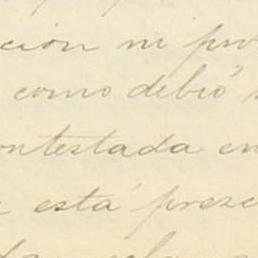 cion ni pro
como debio'
ontestada en
esta' presc